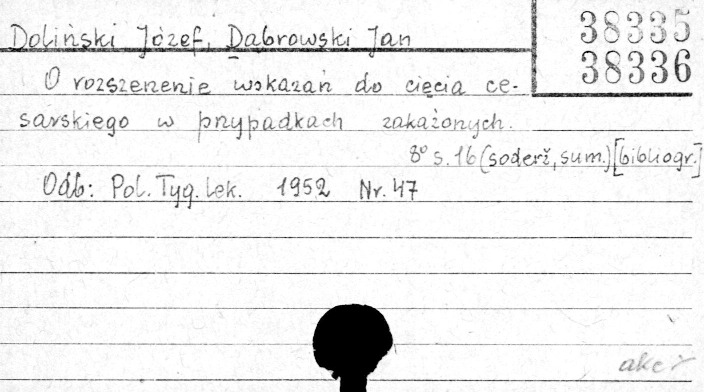 Doliński Józef, Dąbrowski Jan
38335
38336
O rozszerzenie wskazań do cięcia ce-
sarskiego w przypadkach zakażonych.
8° s. 16 (soderž, sum.) [bibliogr.]
Odb: Pol. Tyg. lek. 1952 Nr. 47